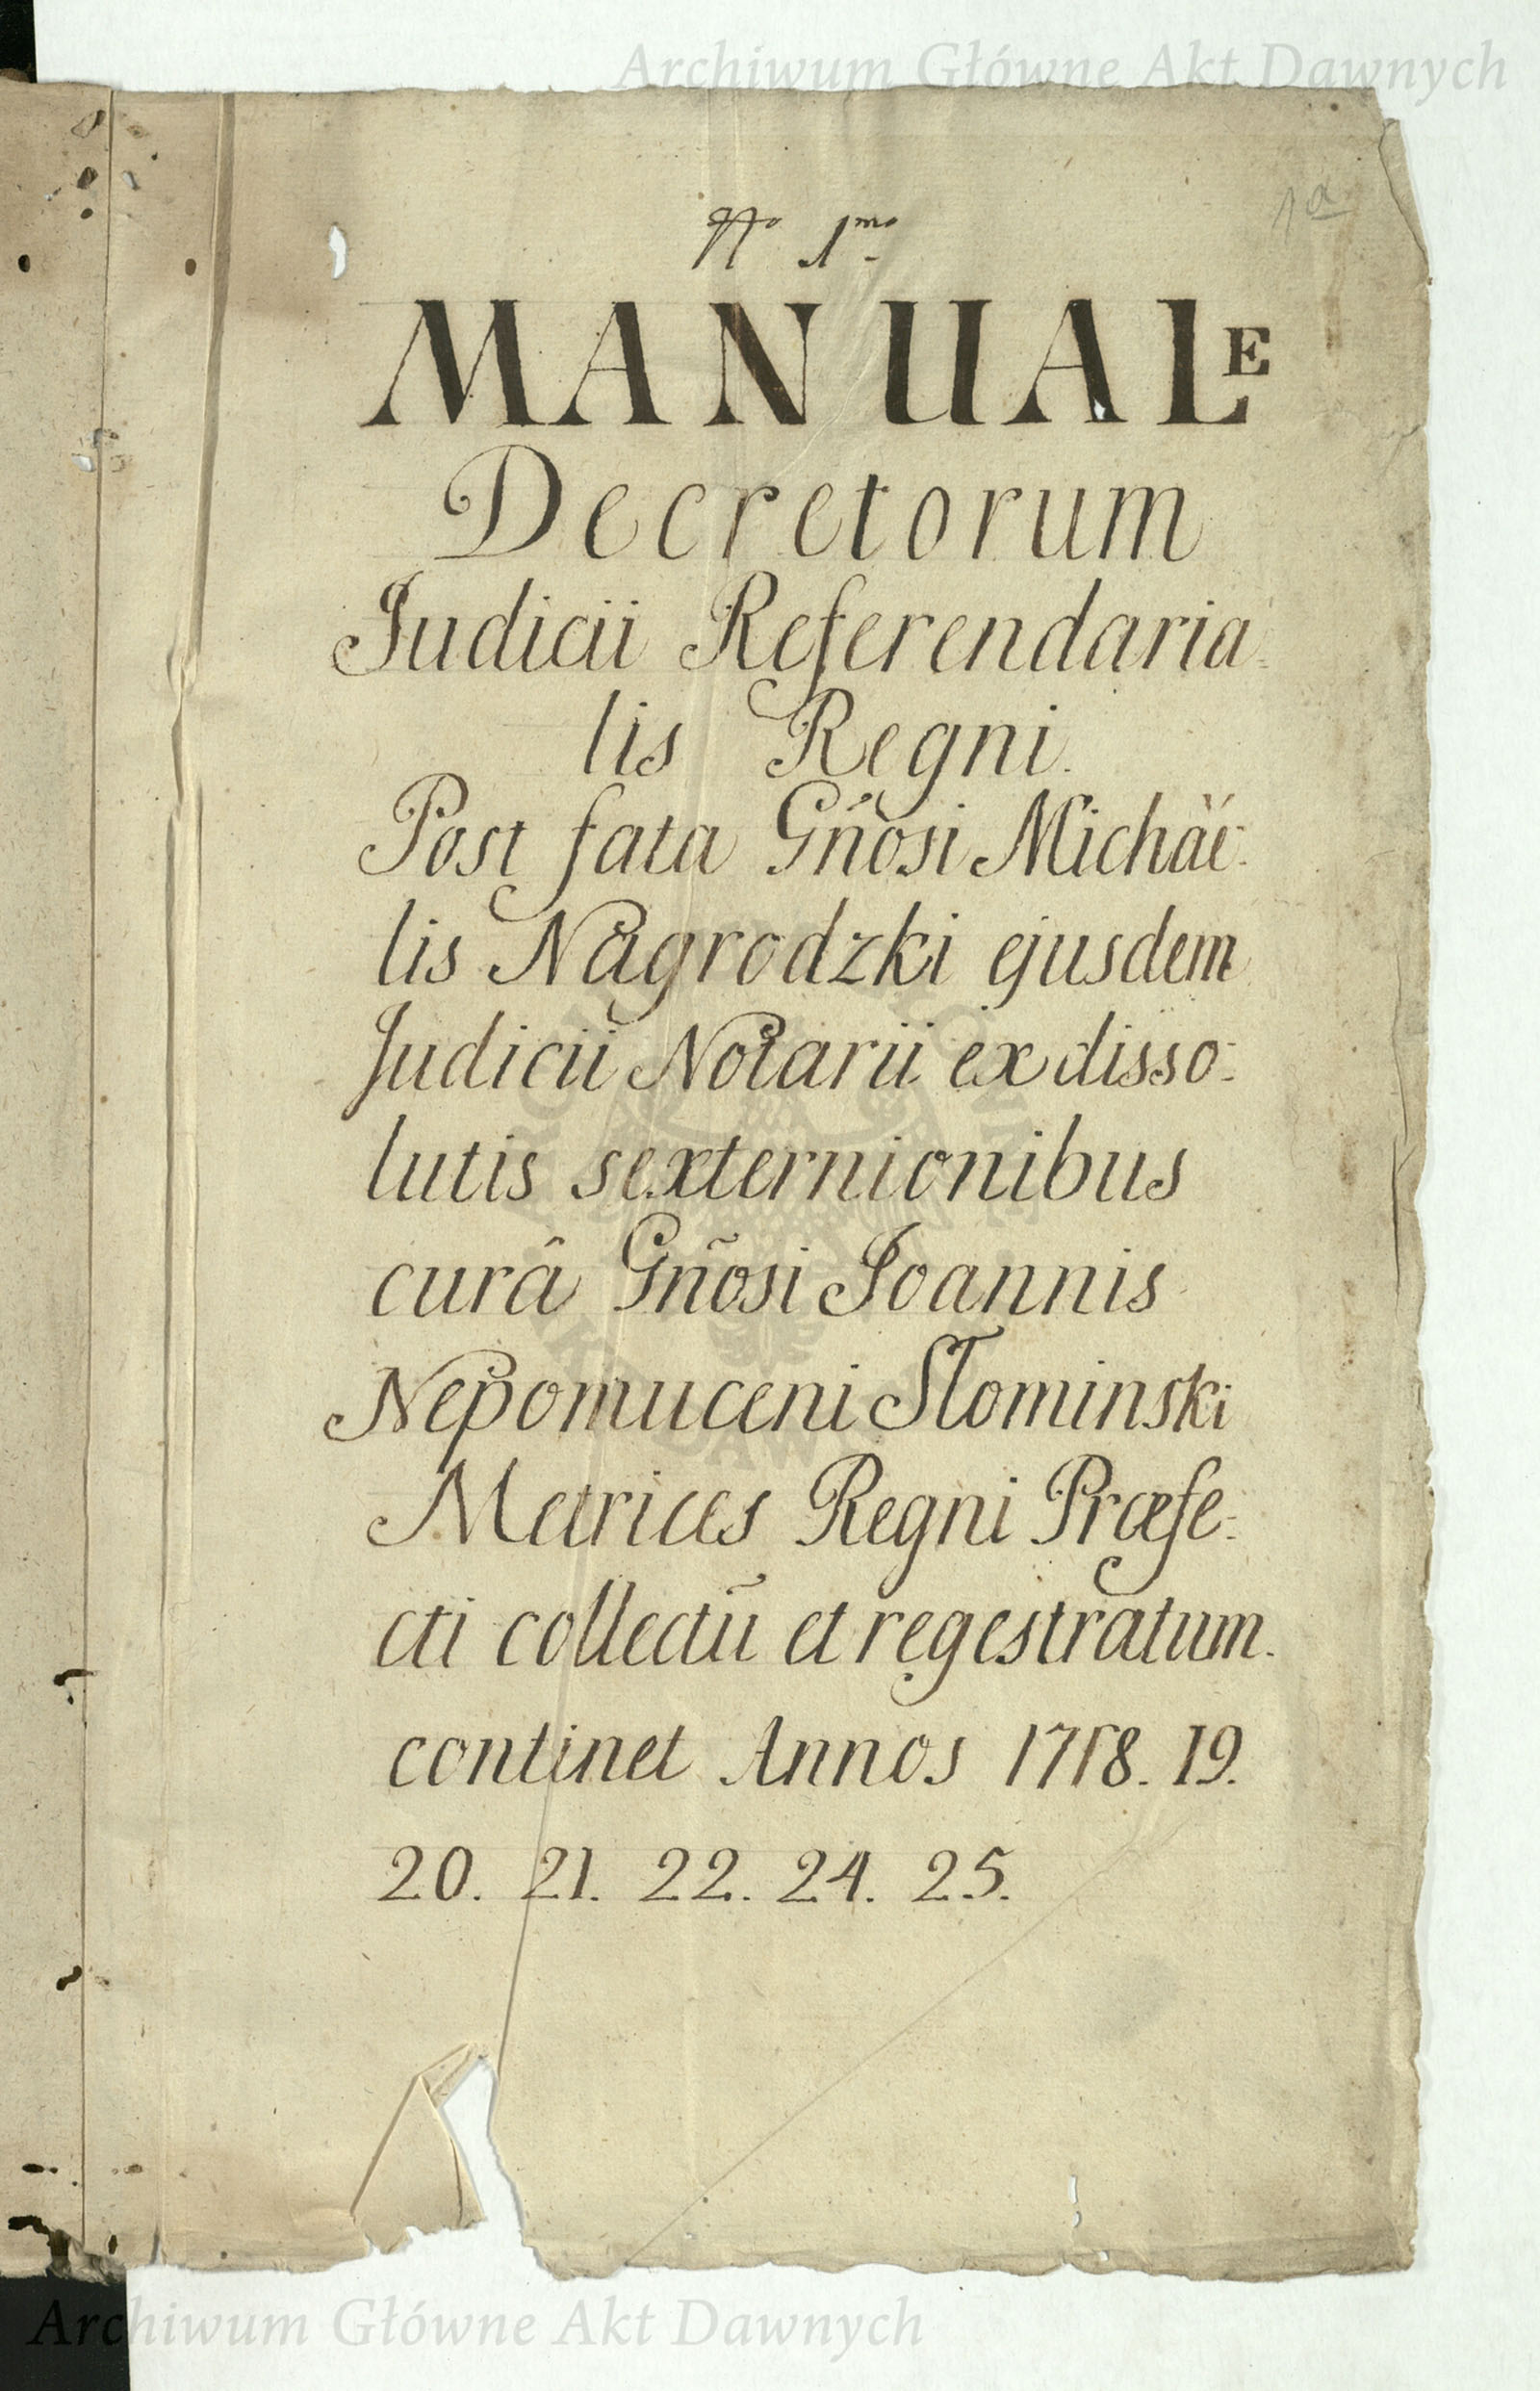 Archiwum Główne Akt Dawnych
1a
No 1mo
MANUALE
Decretorum
Judicii Referendaria=
lis Regni.
Post fata Gñosi Michäe=
lis Nagrodzki ejusdem
Judicii Notarii ex disso=
lutis sexternionibus
curâ Gñosi Joannis
Nepomuceni Słominski
Metrices Regni Præfe=
cti collectũ et regestratum.
continet Annos 1718. 19.
20. 21. 22. 24. 25.
Archiwum Główne Akt Dawnych